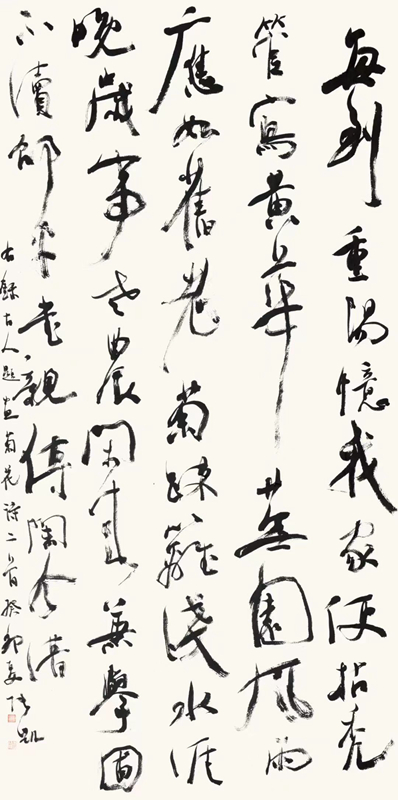 每到重陽憶我家便拈禿
管寫黃華蕪園風雨
應如舊老菊疎籬淺水涯
晚歲事老農閑來兼學圃
不讀書親傳陶令譜
右錄古人題畫菊花詩二首癸卯夏